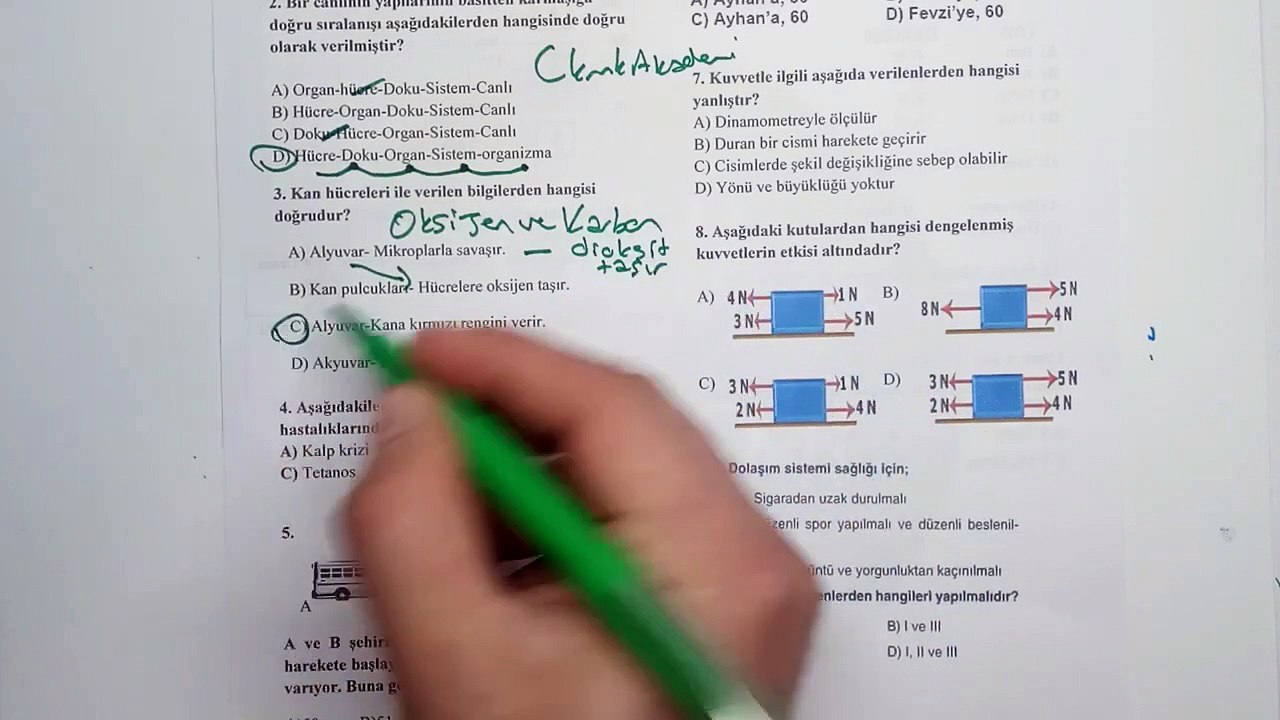 2. Bir canlının yapılarının basitten karmaşığa
doğru sıralanışı aşağıdakilerden hangisinde doğru
olarak verilmiştir?
A) Organ-hücre-Doku-Sistem-Canlı
B) Hücre-Organ-Doku-Sistem-Canlı
C) Doku-Hücre-Organ-Sistem-Canlı
D) Hücre-Doku-Organ-Sistem-organizma
3. Kan hücreleri ile verilen bilgilerden hangisi
doğrudur?
Oksijen ve Karbon
A) Alyuvar- Mikroplarla savaşır. — dioksit
taşır
B) Kan pulcukları- Hücrelere oksijen taşır.
C) Alyuvar-Kana kırmızı rengini verir.
D) Akyuvar-
4. Aşağıdakile
hastalıkların
A) Kalp krizi
C) Tetanos
5.
A
A ve B şehir
harekete başla
varıyor. Buna g
C) Ayhan'a, 60
D) Fevzi'ye, 60
7. Kuvvetle ilgili aşağıda verilenlerden hangisi
yanlıştır?
A) Dinamometreyle ölçülür
B) Duran bir cismi harekete geçirir
C) Cisimlerde şekil değişikliğine sebep olabilir
D) Yönü ve büyüklüğü yoktur
8. Aşağıdaki kutulardan hangisi dengelenmiş
kuvvetlerin etkisi altındadır?
A) 4 N 1 N B) 5 N
3 N 5 N 8 N 4 N
C) 3 N 1 N D) 3 N 5 N
2 N 4 N 2 N 4 N
Dolaşım sistemi sağlığı için;
Sigaradan uzak durulmalı
zenli spor yapılmalı ve düzenli beslenil-
üntü ve yorgunluktan kaçınılmalı
enlerden hangileri yapılmalıdır?
B) I ve III
D) I, II ve III